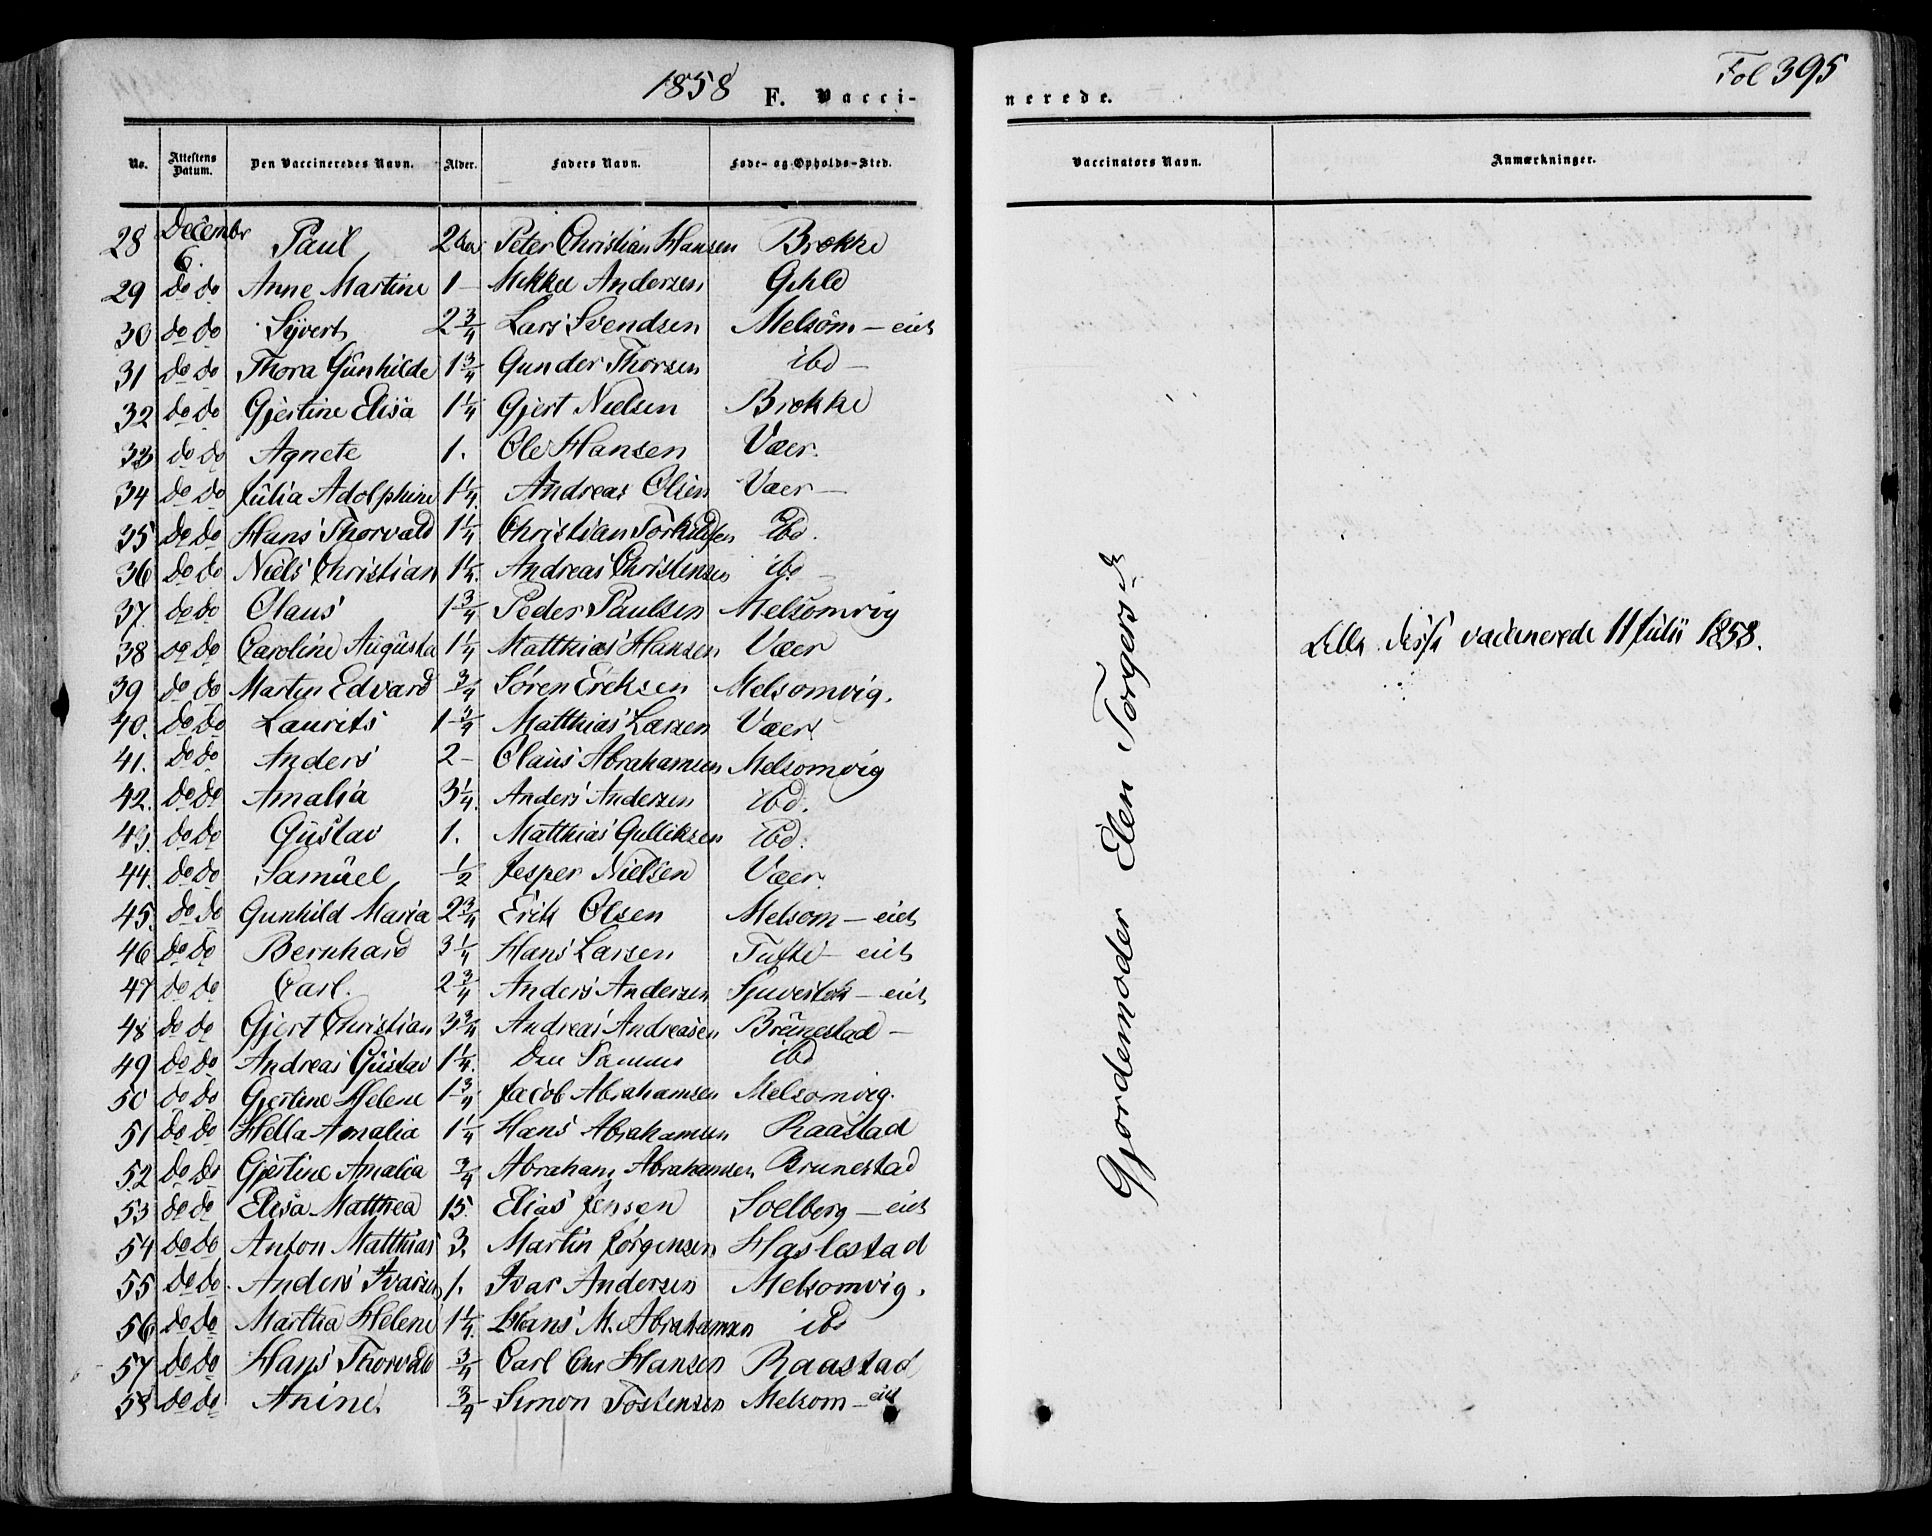 1858 F. Vacci-
No. Attestens Datum. Den Vaccineredes Navn. Alder. Faders Navn. Føde- og Opholds-Sted.
28 Decembr 6. Paul 2 Aar Peter Christian Hansen Brække
29 do do Anne Martine 1 – Mikkel Andersen
30 do do Syvert 2 3/4 Lars Svendsen Melsom – eiet
31 do do Thora Gunhilde 1 3/4 Gunder Thorsen ibd –
32 do do Gjertine Elisa 1 1/4 Gjert Nielsen Brække
33 do do Agnete 1. Ole Hansen Væer.
34 do do Julia Adolphine 1 1/4 Andreas Olsen Væer –
35 do do Hans Thorvald 1 1/4 Christian Torkildsen Ibd.
36 do do Niels Christian 1 1/4. Andreas Christensen ibd –
37. do do Olaus 1 3/4 Peder Paulsen Melsomvig
38 do do Caroline Augusta 1 1/4 Matthias Hansen Væer
39 do do Martin Edvard 3/4 Søren Ericksen Melsomvig.
40. do do Laurits 1 3/4 Matthias Larsen Væer
41. do do Anders 2 – Olaus Abrahamsen Melsomvig
42. do do Amalia 3 1/4. Anders Andersen ibd.
43. do do Gustav 1. Matthias Gulliksen Ibd.
44. do do Samuel 1/2 Jesper Nielsen Væer.
45. do do Gunhild Maria 2 3/4 Erik Olsen Melsom – eiet
46 do do Bernhard 3 1/4 Hans Larsen Tufte – eiet
47 do do Carl. 2 3/4 Anders Andersen – eiet
48 do do Gjert Christian 3 3/4 Andreas Andreasen Brunestad –
49 do do Andreas Gustav 1 1/4. Den Samme ibd
50 do do Gjertine Helene 1 3/4 Jacob Abrahamsen Melsomvig.
51 do do Hella Amalia 1 1/4 Hans Abrahamsen Raastad
52 do do Gjertine Amalia 3/4 Abraham Abrahamsen Brunestad
53 do do Elisa Matthea 15. Elias Jensen Soelberg – eiet
54 do do Anton Matthias 3. Martin Jørgensen Haslestad
55 do do Anders Ivarsen 1. Ivar Andersen Melsomvig.
56 do do Martha Helene 1 1/4 Hans M. Abrahamsen ibd
57 do do Hans Thorvald 3/4 Carl Chr Hansen Raastad
58 do do Anine 3/4 Simon Tostensen Melsom – eiet
Fol 395
nerede.
Vaccinators Navn. Anmærkninger.
Gjordemoder Elen Torgersdr
disse vaccinerede 11 Julii 1858.